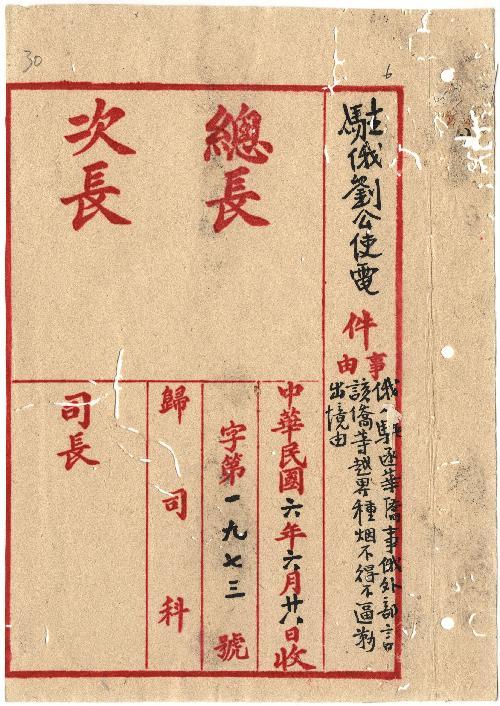 30
6
駐俄劉公使電
件
事由
俄驅逐華僑事俄外部言
該僑等越界種烟不得不逼勒
出境由
總長
次長
中華民國六年六月廿八日收
字第一九七三號
歸司科
司長